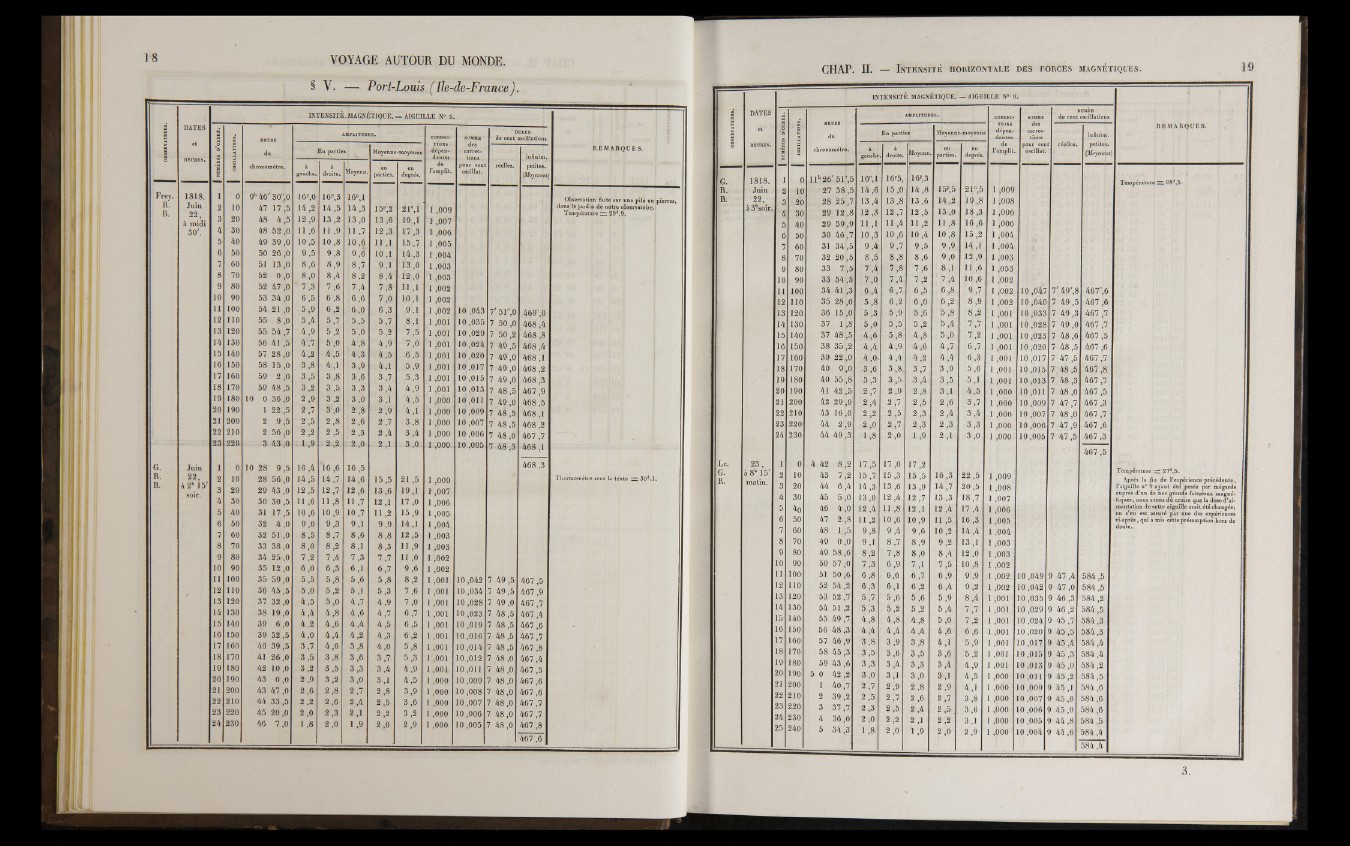 18
VOYAGE AUTOUR DU MONDE.
§ V. — Port-Louis (Ile-de-France).
INTENSITÉ MAGNÉTIQUE. — AIGUILLE N° 2.
OBSERVATEURS.
DATES et HEURES.
NUMÉROS D'ORDRE.
OSCILLATIONS.
HEURE du chronomètre.
AMPLITUDES.
En parties
Moyennes-moyennes
à gauche.
à droite.
Moyenn.
en parties.
en degrés.
CORRECTIONS dépendantes de l'amplit.
SOMME des corrections pour cent oscillat.
DURÉE de cent oscillations
réelles.
infinim. petites. (Moyennes)
REMARQUES.
Frey.
R.
B.
1818.
Juin
22,
à midi
50'.
Observation faite sur une pile en pierres,
dans le jardin de notre observatoire.
Température = 29°,9.
1 0 0h 46' 30",0 16p,0 16p,3 16p,1
2 10 47 17 ,5 14 ,2 14 ,5 14 ,3 15p,2 21°,1 1 ,009
3 20 48 4 ,5 12 ,9 13 ,2 13 ,0 13 ,6 19 ,1 1 ,007
4 30 48 52 ,0 11 ,6 11 ,9 11 ,7 12 ,3 17 ,3 1 ,006
5 40 49 39 ,0 10 ,5 10 ,8 10 ,6 11 ,1 15 ,7 1 ,005
6 50 50 26 ,0 9 ,5 9 ,8 9 ,6 10 ,1 14 ,3 1 ,004
7 60 51 13 ,0 8 ,6 8 ,9 8 ,7 9 ,1 13 ,0 1 ,003
8 70 52 0 ,0 8 ,0 8 ,4 8 ,2 8 ,4 12 ,0 1 ,003
9 80 52 47 ,0 7 ,3 7 ,6 7 ,4 7 ,8 11 ,1 1 ,002
10 90 53 34 ,0 6 ,5 6 ,8 6 ,6 7 ,0 10 ,1 1 ,002
11 100 54 21 ,0 5 ,9 6 ,2 6 ,0 6 ,3 9 ,1 1 ,002 10 ,043 7' 51",0 469",0
12 110 55 8 ,0 5 ,4 5 ,7 5 ,5 5 ,7 8 ,1 1 ,001 10 ,035 7 50 ,0 468 ,4
13 120 55 54 ,7 4 ,9 5 ,2 5 ,0 5 ,2 7 ,5 1 ,001 10 ,029 7 50 ,2 468 ,8
14 130 56 41 ,5 4 ,7 5 ,0 4 ,8 4 ,9 7 ,0 1 ,001 10 ,024 7 49 ,5 468 ,4
15 140 57 28 ,0 4 ,2 4 ,5 4 ,3 4 ,5 6 ,5 1 ,001 10 ,020 7 49 ,0 468 ,1
16 150 58 15 ,0 3 ,8 4 ,1 3 ,9 4 ,1 5 ,9 1 ,001 10 ,017 7 49 ,0 468 ,2
17 160 59 2 ,0 3 ,5 3 ,8 3 ,6 3 ,7 5 ,3 1 ,001 10 ,015 7 49 ,0 468 ,3
18 170 59 48 ,5 3 ,2 3 ,5 3 ,3 3 ,4 4 ,9 1 ,001 10 ,013 7 48 ,5 467 ,9
19 180 10 0 36 ,0 2 ,9 3 ,2 3 ,0 3 ,1 4 ,5 1 ,000 10 ,011 7 49 ,0 468 ,5
20 190 1 22 ,5 2 ,7 3 ,0 2 ,8 2 ,9 4 ,1 1 ,000 10 ,009 7 48 ,5 468 ,1
21 200 2 9 ,5 2 ,5 2 ,8 2 ,6 2 ,7 3 ,8 1 ,000 10 ,007 7 48 ,5 468 ,2
22 210 2 56 ,0 2 ,2 2 ,5 2 ,3 2 ,4 3 ,4 1 ,000 10 ,006 7 48 ,0 467 ,7
23 220 3 43 ,0 1 ,9 2 ,2 2 ,0 2 ,1 3 ,0 1 ,000 10 ,005 7 48 ,3 468 ,1
468 ,3
G.
R.
B.
Juin
22,
à 2h 15'
soir.
Thermomètre sous la tente = 30°,1.
1 0 10 28 9 ,5 16 ,4 16 ,6 16 ,5
2 10 28 56 ,0 14 ,5 14 ,7 14 ,6 15 ,5 21 ,5 1 ,009
3 20 29 43 ,0 12 ,5 12 ,7 12 ,6 13 ,6 19 ,1 1 ,007
4 30 30 30 ,5 11 ,6 11 ,8 11 ,7 12 ,1 17 ,0 1 ,006
5 40 31 17 ,5 10 ,6 10 ,9 10 ,7 11 ,2 15 ,9 1 ,005
6 50 32 4 ,0 9 ,0 9 ,3 9 ,1 9 ,9 14 ,1 1 ,004
7 60 32 51 ,0 8 ,5 8 ,7 8 ,6 8 ,8 12 ,5 1 ,003
8 70 33 38 ,0 8 ,0 8 ,2 8 ,1 8 ,3 11 ,9 1 ,003
9 80 34 25 ,0 7 ,2 7 ,4 7 ,3 7 ,7 11 ,0 1 ,002
10 90 35 12 ,0 6 ,0 6 ,3 6 ,1 6 ,7 9 ,6 1 ,002
11 100 35 59 ,0 5 ,5 5 ,8 5 ,6 5 ,8 8 ,2 1 ,001 10 ,042 7 49 ,5 467 ,5
12 110 36 45 ,5 5 ,0 5 ,2 5 ,1 5 ,3 7 ,6 1 ,001 10 ,034 7 49 ,5 467 ,9
13 120 37 32 ,0 4 ,5 5 ,0 4 ,7 4 ,9 7 ,0 1 ,001 10 ,028 7 49 ,0 467 ,7
14 130 38 19 ,0 4 ,4 4 ,8 4 ,6 4 ,7 6 ,7 1 ,001 10 ,023 7 48 ,5 467 ,4
15 140 39 6 ,0 4 ,2 4 ,6 4 ,4 4 ,5 6 ,5 1 ,001 10 ,019 7 48 ,5 467 ,6
16 150 39 52 ,5 4 ,0 4 ,4 4 ,2 4 ,3 6 ,2 1 ,001 10 ,016 7 48 ,5 467 ,7
17 160 40 39 ,5 3 ,7 4 ,0 3 ,8 4 ,0 5 ,8 1 ,001 10 ,014 7 48 ,5 467 ,8
18 170 41 26 ,0 3 ,5 3 ,8 3 ,6 3 ,7 5 ,3 1 ,001 10 ,012 7 48 ,0 467 ,4
19 180 42 10 ,0 3 ,2 3 ,5 3 ,3 3 ,4 4 ,9 1 ,001 10 ,011 7 48 ,0 467 ,5
20 190 43 0 ,0 2 ,9 3 ,2 3 ,0 3 ,1 4 ,5 1 ,000 10 ,009 7 48 ,0 467 ,6
21 200 43 47 ,0 2 ,6 2 ,8 2 ,7 2 ,8 3 ,9 1 ,000 10 ,008 7 48 ,0 467 ,6
22 210 44 33 ,5 2 ,2 2 ,6 2 ,4 2 ,5 3 ,6 1 ,000 10 ,007 7 48 ,0 467 ,7
23 220 45 20 ,0 2 ,0 2 ,3 2 ,1 2 ,2 3 ,2 1 ,000 10 ,006 7 48 ,0 467 ,7
24 230 46 7 ,0 1 ,8 2 ,0 1 ,9 2 ,0 2 ,9 1 ,000 10 ,005 7 48 ,0 467 ,8
467 ,6
CHAP. II. — INTENSITÉ HORIZONTALE DES FORCES MAGNÉTIQUES.
19
INTENSITÉ MAGNÉTIQUE. — AIGUILLE N° 2.
OBSERVATEURS.
DATES et HEURES.
NUMÉROS D'ORDRE.
OSCILLATIONS.
HEURE du chronomètre.
AMPLITUDES.
En parties
Moyennes-moyennes
à gauche.
à droite.
Moyenn.
en parties.
en degrés.
CORRECTIONS dépendantes de l'amplit.
SOMME des corrections pour cent oscillat.
DURÉE de cent oscillations
réelles.
infinim. petites. (Moyennes)
REMARQUES.
G.
R.
B.
1818.
Juin
22,
à 3h soir.
Température = 29°,5.
1 0 11h 26' 51",5 16p,1 16p,5 16p,3
2 10 27 38 ,5 14 ,6 15 ,0 14 ,8 15p,5 21°,5 1 ,009
3 20 28 25 ,7 13 ,4 13 ,8 13 ,6 14 ,2 19 ,8 1 ,008
4 30 29 12 ,8 12 ,3 12 ,7 12 ,5 13 ,0 18 ,3 1 ,006
5 40 29 59 ,9 11 ,1 11 ,4 11 ,2 11 ,8 16 ,6 1 ,006
6 50 30 46 ,7 10 ,3 10 ,6 10 ,4 10 ,8 15 ,2 1 ,004
7 60 31 34 ,5 9 ,4 9 ,7 9 ,5 9 ,9 14 ,1 1 ,004
8 70 32 20 ,5 8 ,5 8 ,8 8 ,6 9 ,0 12 ,9 1 ,003
9 80 33 7 ,5 7 ,4 7 ,8 7 ,6 8 ,1 11 ,6 1 ,003
10 90 33 54 ,5 7 ,0 7 ,4 7 ,2 7 ,4 10 ,6 1 ,002
11 100 34 41 ,3 6 ,4 6 ,7 6 ,5 6 ,8 9 ,7 1 ,002 10 ,047 7' 49",8 467",6
12 110 35 28 ,0 5 ,8 6 ,2 6 ,0 6 ,2 8 ,9 1 ,002 10 ,040 7 49 ,5 467 ,6
13 120 36 15 ,0 5 ,3 5 ,9 5 ,6 5 ,8 8 ,2 1 ,001 10 ,033 7 49 ,3 467 ,7
14 130 37 1 ,8 5 ,0 5 ,5 5 ,2 5 ,4 7 ,7 1 ,001 10 ,028 7 49 ,0 467 ,7
15 140 37 48 ,5 4 ,6 5 ,8 4 ,8 5 ,0 7 ,2 1 ,001 10 ,023 7 48 ,6 467 ,5
16 150 38 35 ,2 4 ,4 4 ,9 4 ,6 4 ,7 6 ,7 1 ,001 10 ,020 7 48 ,5 467 ,6
17 160 39 22 ,0 4 ,0 4 ,4 4 ,2 4 ,4 6 ,3 1 ,001 10 ,017 7 47 ,5 467 ,7
18 170 40 9 ,0 3 ,6 3 ,8 3 ,7 3 ,9 5 ,6 1 ,001 10 ,015 7 48 ,5 467 ,8
19 180 40 55 ,8 3 ,3 3 ,5 3 ,4 3 ,5 5 ,1 1 ,001 10 ,013 7 48 ,3 467 ,7
20 190 41 42 ,5 2 ,7 2 ,9 2 ,8 3 ,1 4 ,5 1 ,000 10 ,011 7 48 ,0 467 ,5
21 200 42 29 ,0 2 ,4 2 ,7 2 ,5 2 ,6 3 ,7 1 ,000 10 ,009 7 47 ,7 467 ,3
22 210 43 16 ,0 2 ,2 2 ,5 2 ,3 2 ,4 3 ,4 1 ,000 10 ,007 7 48 ,0 467 ,7
23 220 44 2 ,9 2 ,0 2 ,7 2 ,3 2 ,3 3 ,3 1 ,000 10 ,006 7 47 ,9 467 ,6
24 230 44 49 ,3 1 ,8 2 ,0 1 ,9 2 ,1 3 ,0 1 ,000 10 ,005 7 47 ,5 467 ,3
467 ,5
Le.
G.
R.
23,
à 8h 15'
matin.
Température = 27°,5.
Après la fin de l'expérience précédente,
l'aiguille n° 2 ayant été posée par mégarde
auprès d'un de nos grands faisceaux magnétiques,
nous avons dû croire que la dose d'aimantation
de cette aiguille avait été changée;
on s'en est assuré par une des expériences
ci-après, qui a mis cette présomption hors de
doute.
1 0 4 42 8 ,2 17 ,5 17 ,0 17 ,2
2 10 43 7 ,2 15 ,7 15 ,3 15 ,5 16 ,3 22 ,5 1 ,009
3 20 44 6 ,4 14 ,3 13 ,6 13 ,9 14 ,7 20 ,5 1 ,008
4 30 45 5 ,0 13 ,0 12 ,4 12 ,7 13 ,3 18 ,7 1 ,007
5 40 46 4 ,0 12 ,4 11 ,8 12 ,1 12 ,4 17 ,4 1 ,006
6 50 47 2 ,8 11 ,2 10 ,6 10 ,9 11 ,5 16 ,3 1 ,005
7 60 48 1 ,5 9 ,8 9 ,4 9 ,6 10 ,2 14 ,4 1 ,004
8 70 49 0 ,0 9 ,1 8 ,7 8 ,9 9 ,2 13 ,1 1 ,003
9 80 49 58 ,6 8 ,2 7 ,8 8 ,0 8 ,4 12 ,0 1 ,003
10 90 50 57 ,0 7 ,3 6 ,9 7 ,1 7 ,5 10 ,8 1 ,002
11 100 51 50 ,6 6 ,8 6 ,6 6 ,7 6 ,9 9 ,9 1 ,002 10 ,049 9 47 ,4 584 ,5
12 110 52 54 ,2 6 ,3 6 ,1 6 ,2 6 ,4 9 ,2 1 ,002 10 ,042 9 47 ,0 584 ,5
13 120 53 52 ,7 5 ,7 5 ,6 5 ,6 5 ,9 8 ,4 1 ,001 10 ,035 9 46 ,3 584 ,2
14 130 54 51 ,2 5 ,3 5 ,2 5 ,2 5 ,4 7 ,7 1 ,001 10 ,029 9 46 ,2 584 ,5
15 140 55 49 ,7 4 ,8 4 ,8 4 ,8 5 ,0 7 ,2 1 ,001 10 ,024 9 45 ,7 584 ,3
16 150 56 48 ,3 4 ,4 4 ,4 4 ,4 4 ,6 6 ,6 1 ,001 10 ,020 9 45 ,5 584 ,3
17 160 57 46 ,9 3 ,8 3 ,9 3 ,8 4 ,1 5 ,9 1 ,001 10 ,017 9 45 ,4 584 ,4
18 170 58 45 ,3 3 ,5 3 ,6 3 ,5 3 ,6 5 ,2 1 ,001 10 ,015 9 45 ,3 584 ,4
19 180 59 43 ,6 3 ,3 3 ,4 3 ,3 3 ,4 4 ,9 1 ,001 10 ,013 9 45 ,0 584 ,2
20 190 5 0 42 ,2 3 ,0 3 ,1 3 ,0 3 ,1 4 ,5 1 ,000 10 ,011 9 45 ,2 584 ,5
21 200 1 40 ,7 2 ,7 2 ,9 2 ,8 2 ,9 4 ,1 1 ,000 10 ,009 9 45 ,1 584 ,6
22 210 2 39 ,2 2 ,5 2 ,7 2 ,6 2 ,7 3 ,8 1 ,000 10 ,007 9 45 ,0 584 ,6
23 220 3 37 ,7 2 ,3 2 ,5 2 ,4 2 ,5 3 ,6 1 ,000 10 ,006 9 45 ,0 584 ,6
24 230 4 36 ,0 2 ,0 2 ,2 2 ,1 2 ,2 3 ,1 1 ,000 10 ,005 9 44 ,8 584 ,5
25 240 5 34 ,3 1 ,8 2 ,0 1 ,9 2 ,0 2 ,9 1 ,000 10 ,004 9 44 ,6 584 ,4
584 ,4
3.